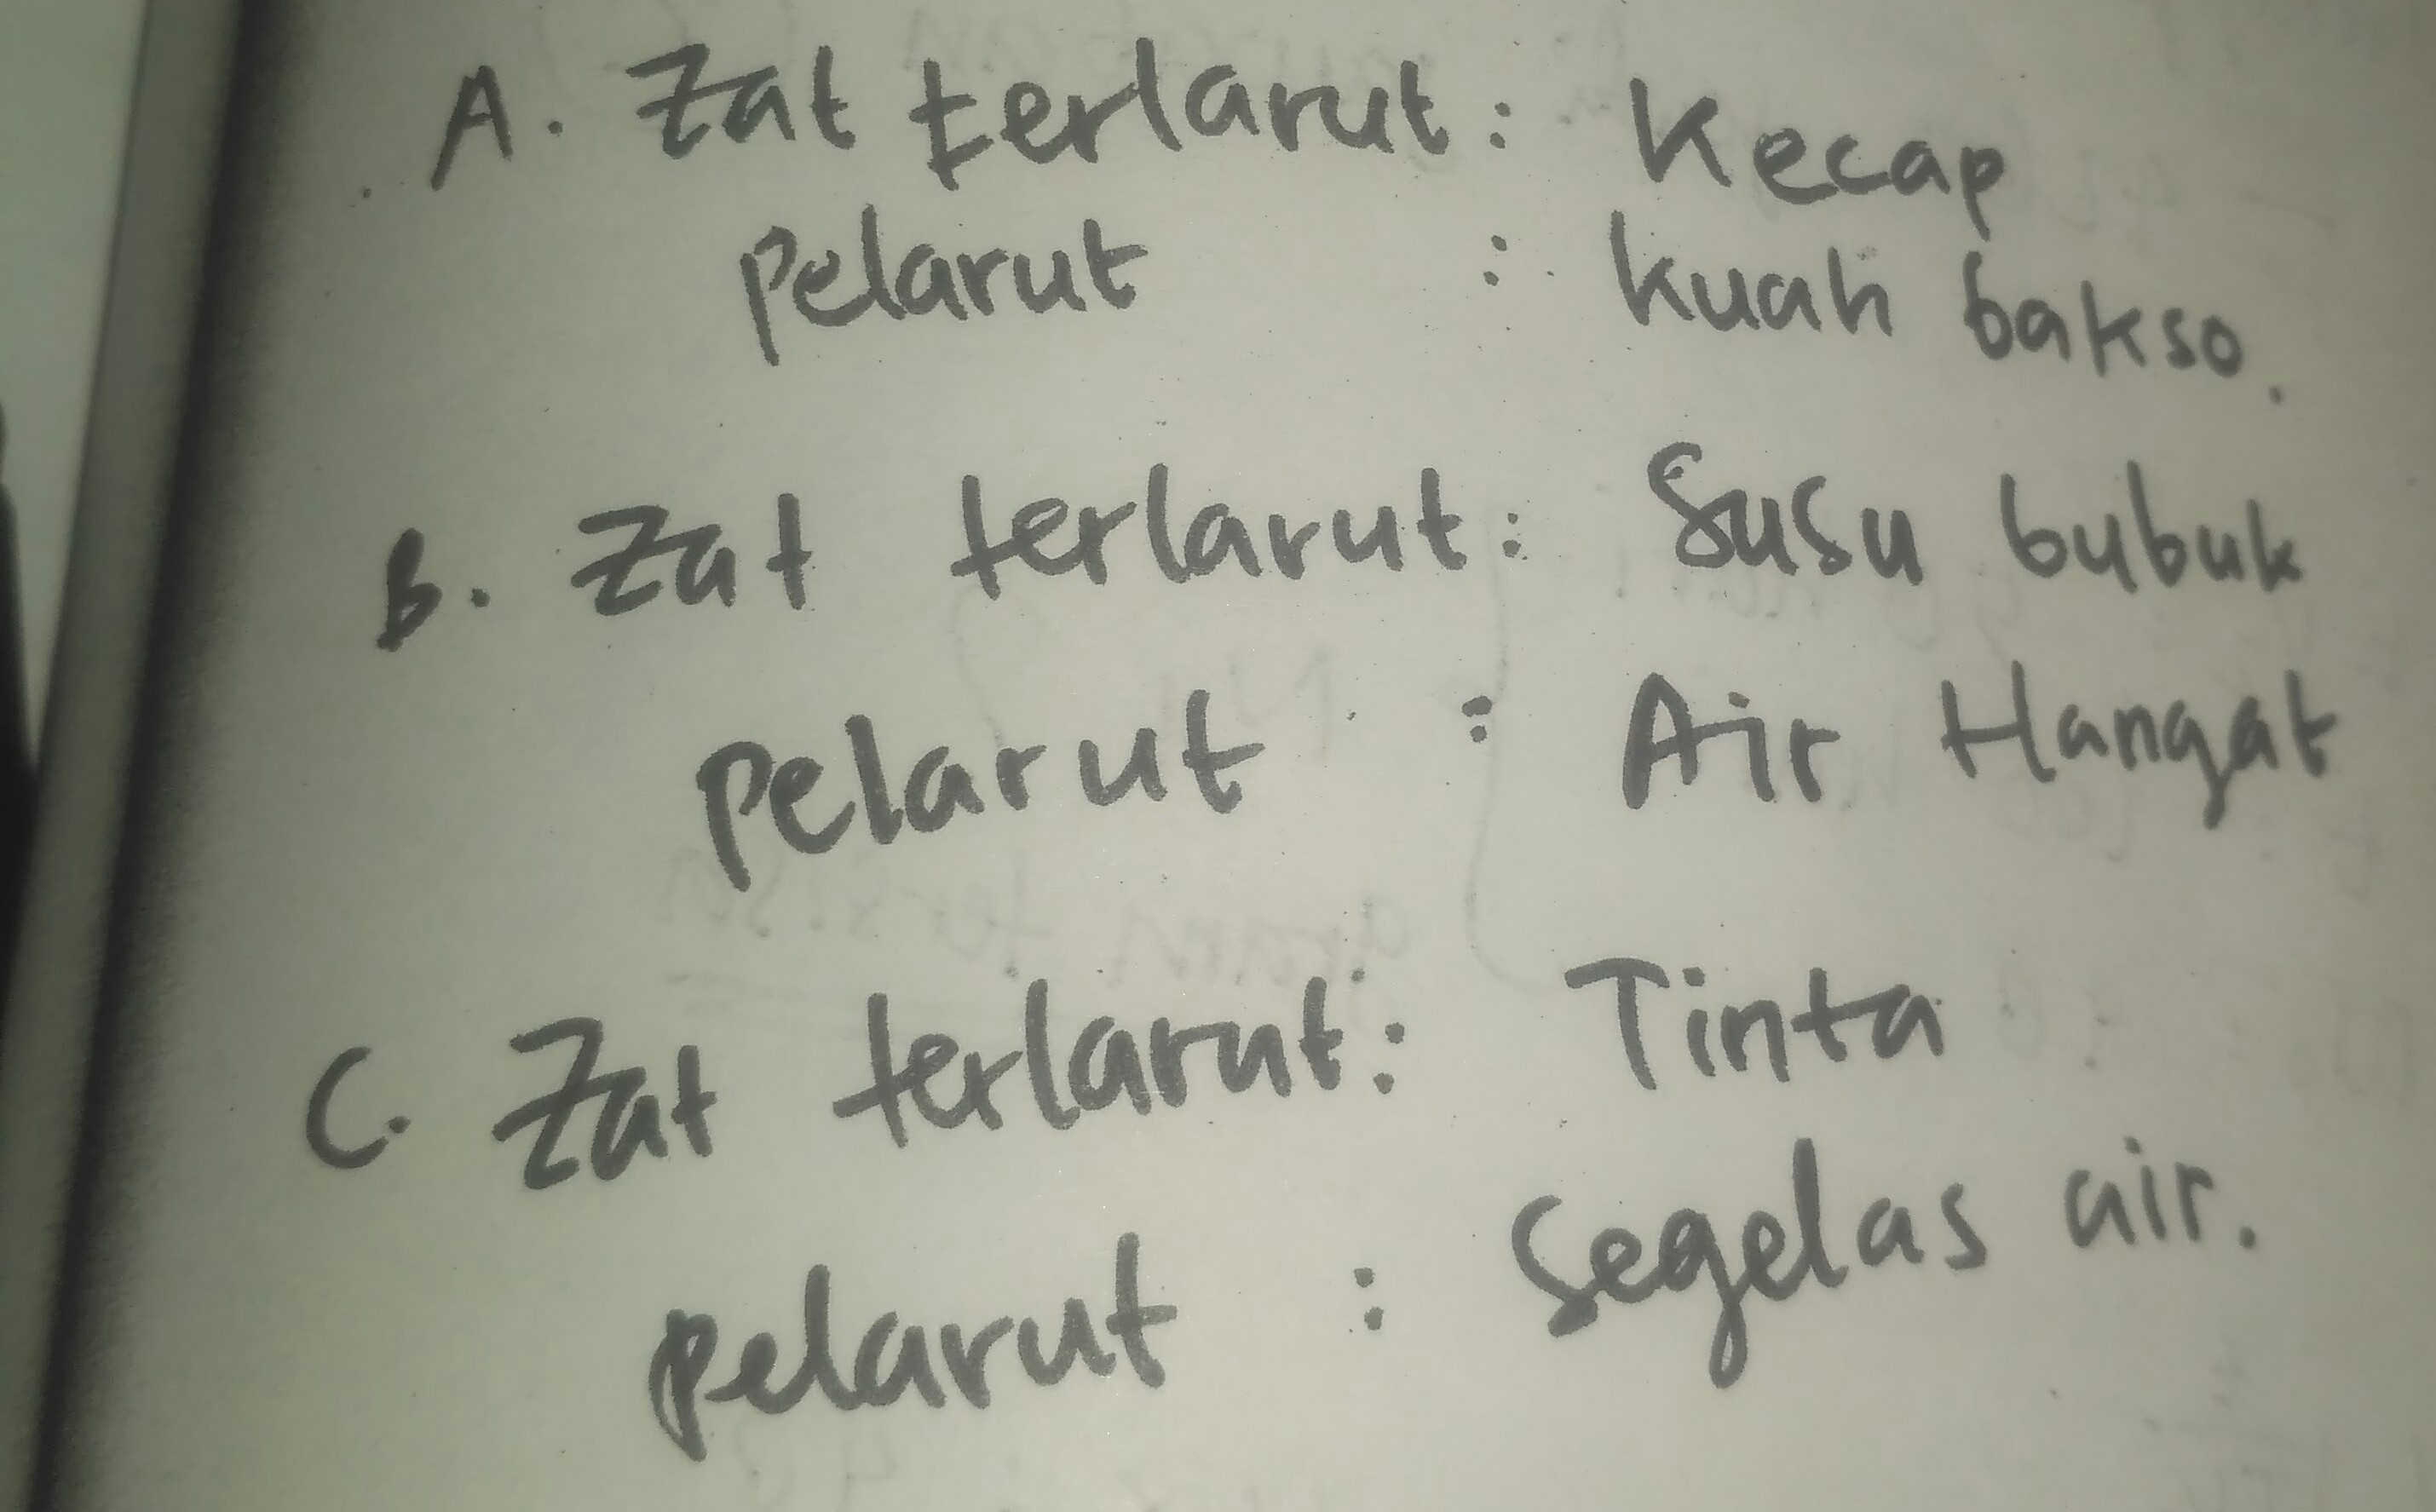 A. Zat terlarut : Kecap
Pelarut : kuah bakso.
B. Zat terlarut : Susu bubuk
Pelarut : Air Hangat
C. Zat terlarut : Tinta
pelarut : Segelas air.